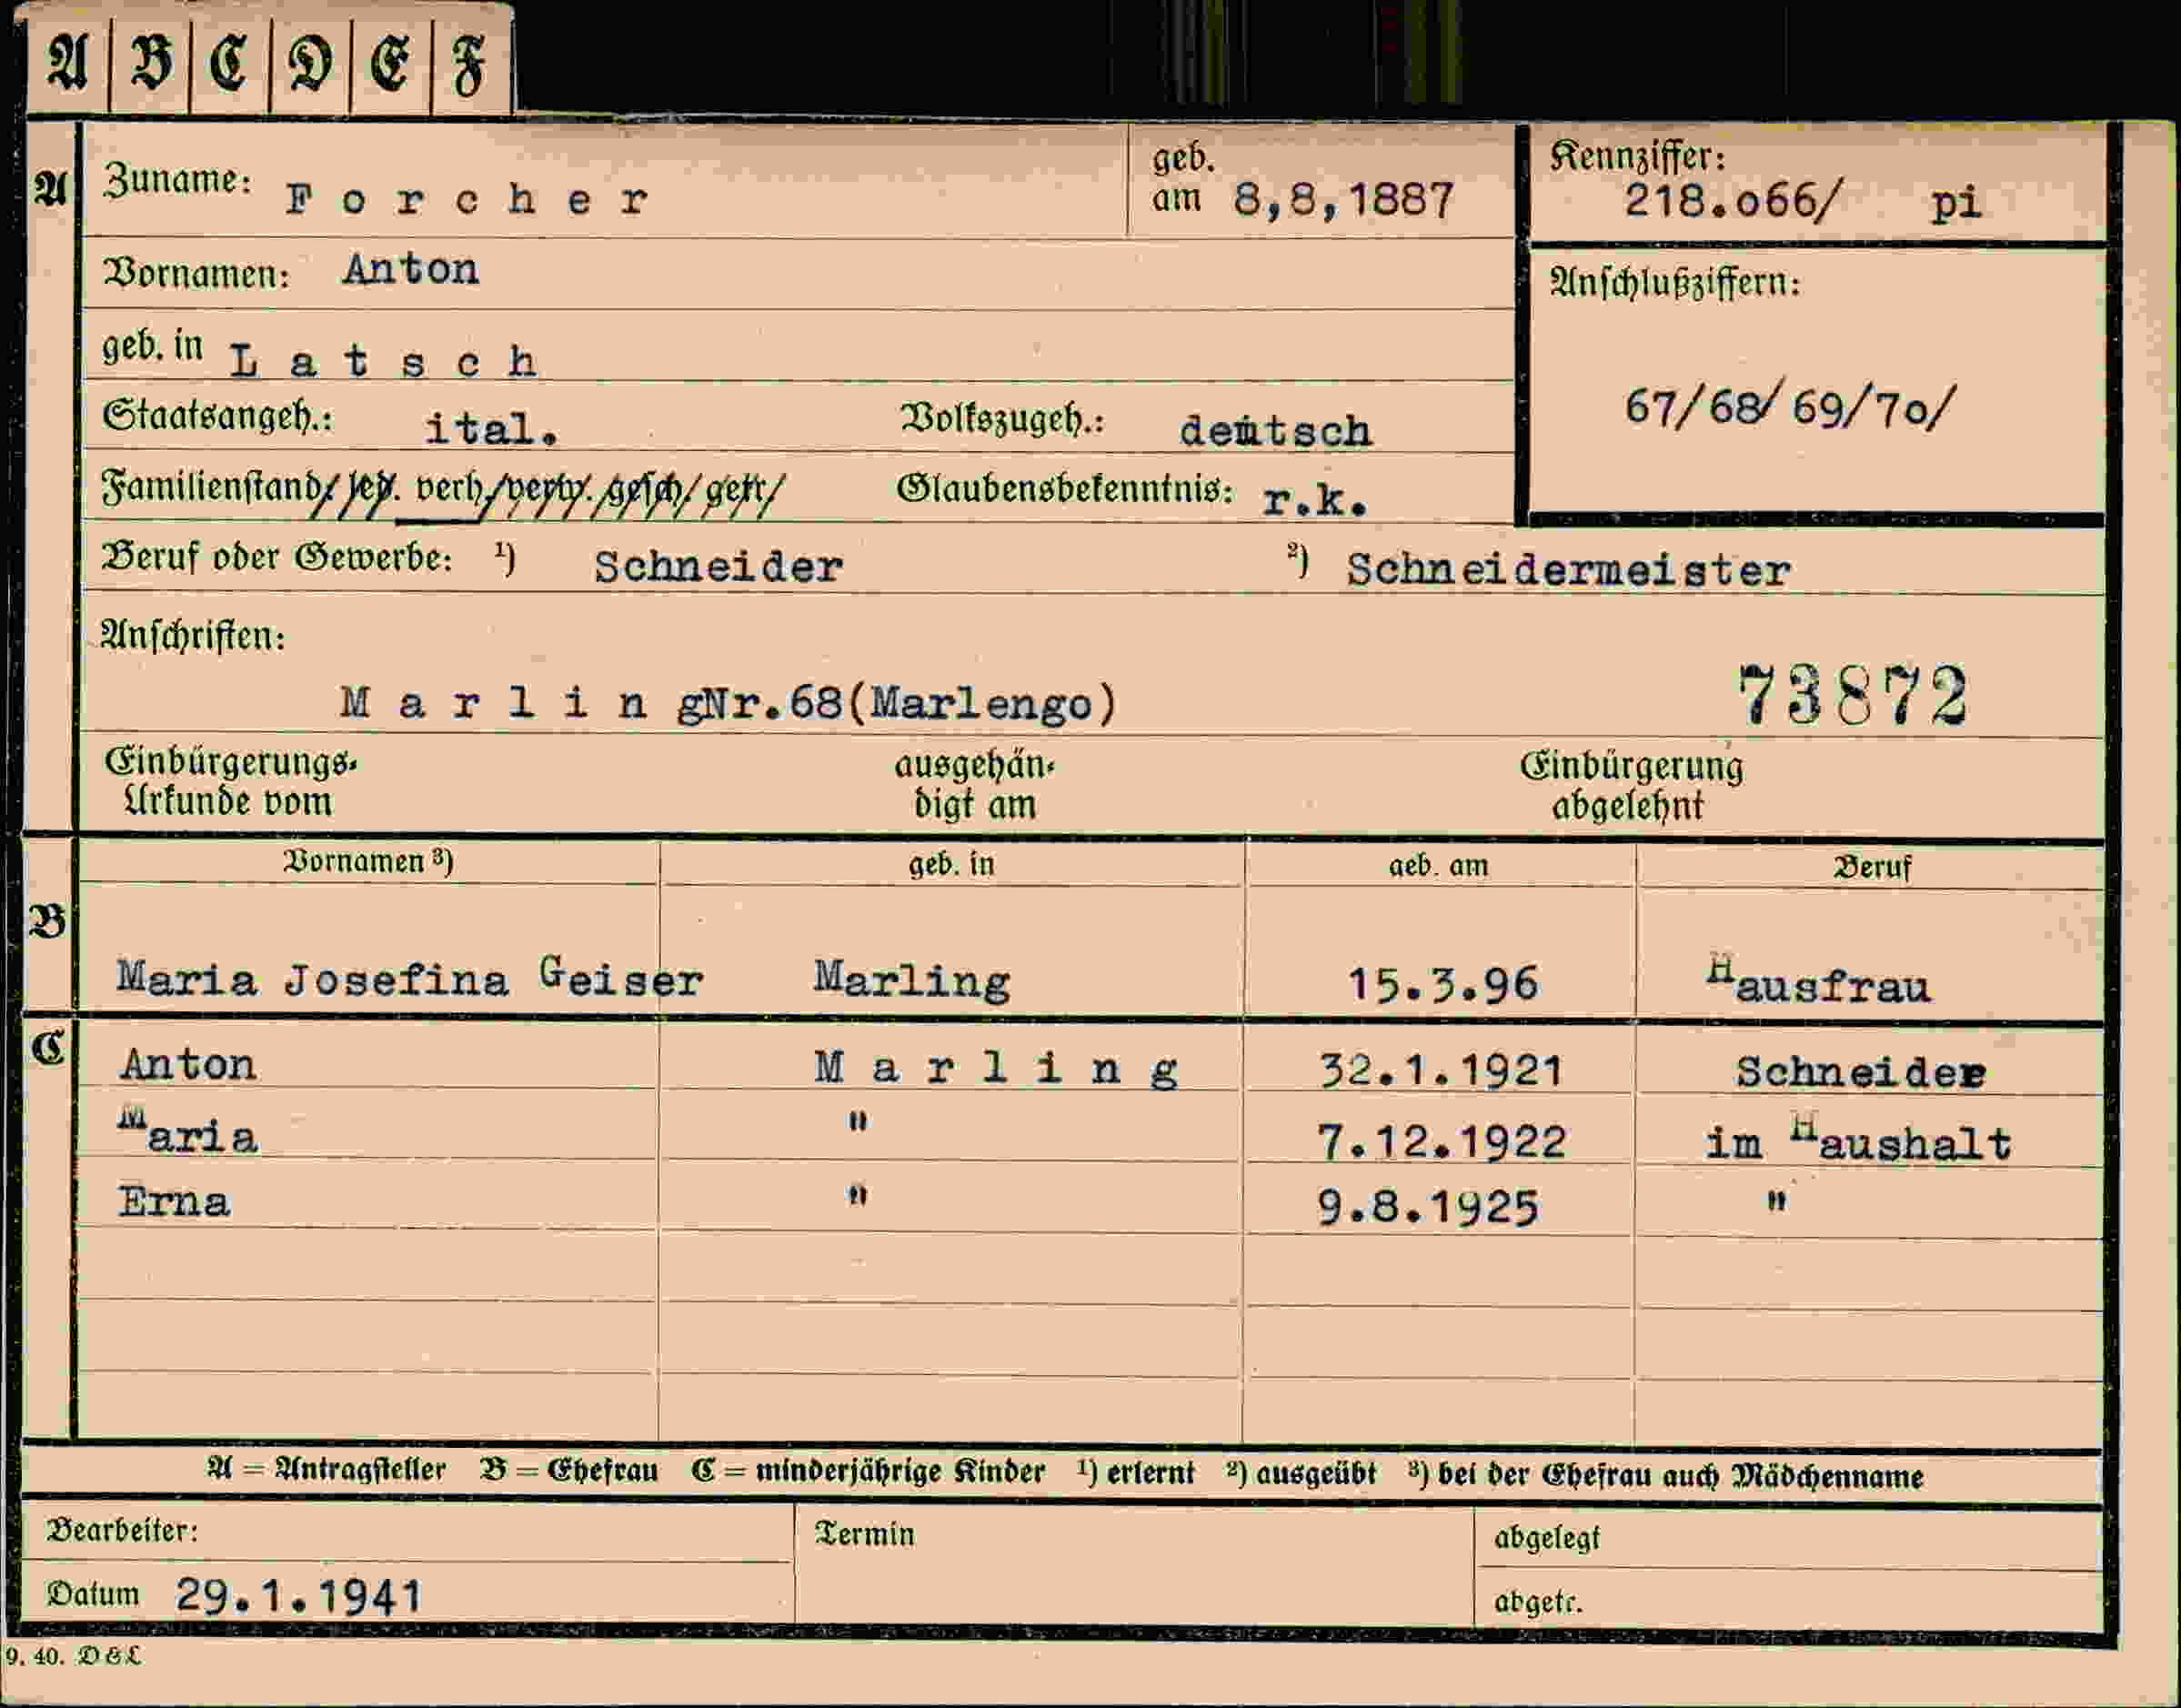 A B C D E F
A Zuname: Forcher geb. am 8,8,1887 Kennziffer: 218.o66/ pi
Vornamen: Anton Anschlußziffern:
geb. in Latsch 67/68/69/7o/
Staatsangeh.: ital. Volkszugeh.: deutsch
Familienstand: led. verh. verw. gesch. getr. Glaubensbekenntnis: r.k.
Beruf oder Gewerbe: 1) Schneider 2) Schneidermeister
Anschriften:
MarlingNr.68(Marlengo) 73872
Einbürgerungs- ausgehän- Einbürgerung
Urkunde vom digt am abgelehnt
Vornamen 3) geb. in geb. am Beruf
B
Maria Josefina Geiser Marling 15.3.96 Hausfrau
C Anton Marling 32.1.1921 Schneider
Maria " 7.12.1922 im Haushalt
Erna " 9.8.1925 "
A = Antragsteller B = Ehefrau C = minderjährige Kinder 1) erlernt 2) ausgeübt 3) bei der Ehefrau auch Mädchenname
Bearbeiter: Termin abgelegt
Datum 29.1.1941 abgetr.
9. 40. D & L